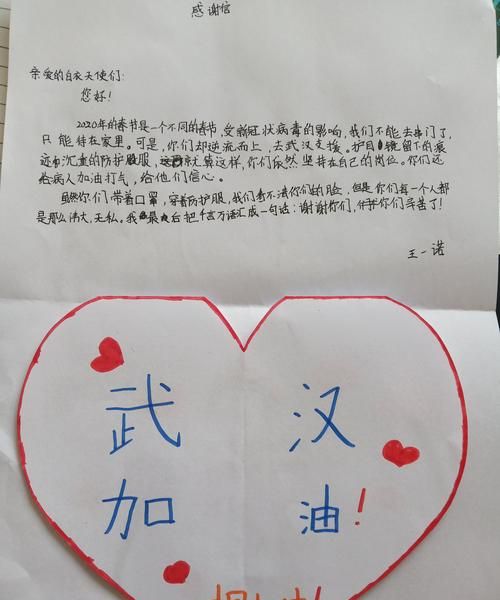 感谢信
亲爱的白衣天使们:
您好!
2020年的春节是一个不同的春节,受新冠状病毒的影响,我们不能去串门了,
只能待在家里。可是,你们却逆流而上,去武汉支援。护目镜留下的痕
迹和沉重的防护服,就算这样,你们依然坚持在自己的岗位。你们还
给病人加油打气,给他们信心。
虽然你们带着口罩,穿着防护服,我们看不清你们的脸,但是你们每一个人都
是那么伟大,无私。我最后把千言万语汇成一句话:谢谢你们,你们辛苦了!
王一诺
武汉
加油!